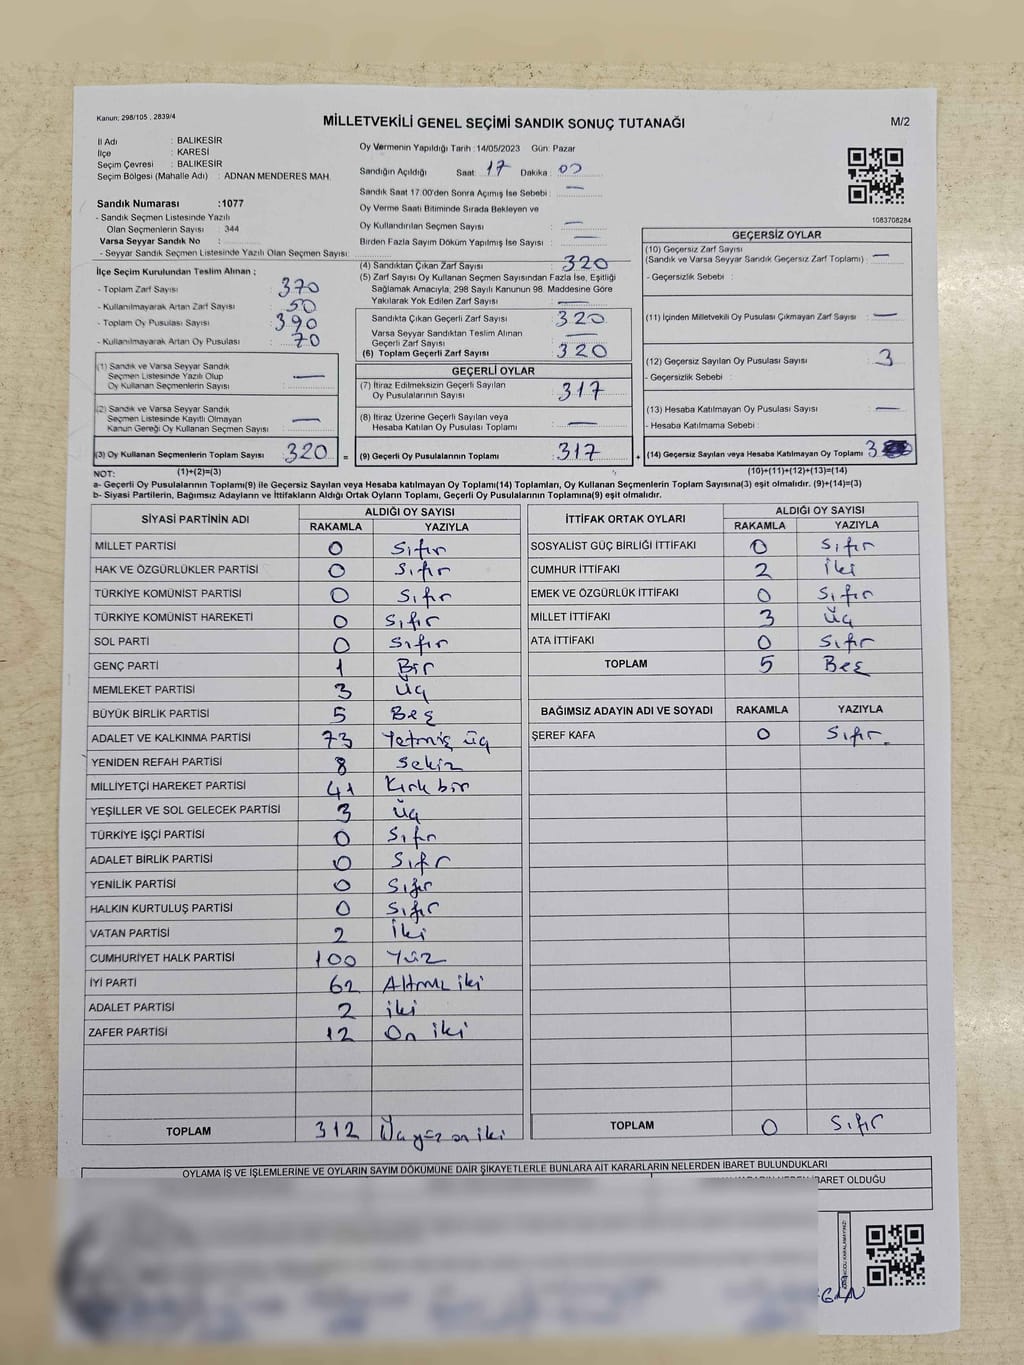 Kanun; 298/105 , 2839/4
MİLLETVEKİLİ GENEL SEÇİMİ SANDIK SONUÇ TUTANAĞI
M/2
İl Adı : BALIKESİR
İlçe : KARESİ
Seçim Çevresi : BALIKESİR
Seçim Bölgesi (Mahalle Adı) : ADNAN MENDERES MAH.
Sandık Numarası :1077
- Sandık Seçmen Listesinde Yazılı
Olan Seçmenlerin Sayısı : 344
Varsa Seyyar Sandık No :
- Seyyar Sandık Seçmen Listesinde Yazılı Olan Seçmen Sayısı:
İlçe Seçim Kurulundan Teslim Alınan ;
- Toplam Zarf Sayısı : 370
- Kullanılmayarak Artan Zarf Sayısı : 50
- Toplam Oy Pusulası Sayısı : 390
- Kullanılmayarak Artan Oy Pusulası : 70
(1) Sandık ve Varsa Seyyar Sandık
Seçmen Listesinde Yazılı Olup
Oy Kullanan Seçmenlerin Sayısı : —
(2) Sandık ve Varsa Seyyar Sandık
Seçmen Listesinde Kayıtlı Olmayan
Kanun Gereği Oy Kullanan Seçmen Sayısı : —
(3) Oy Kullanan Seçmenlerin Toplam Sayısı : 320 =
Oy Vermenin Yapıldığı Tarih :14/05/2023 Gün: Pazar
Sandığın Açıldığı Saat : 17 Dakika : 00
Sandık Saat 17.00'den Sonra Açımış İse Sebebi : —
Oy Verme Saati Bitiminde Sırada Bekleyen ve
Oy Kullandırılan Seçmen Sayısı : —
Birden Fazla Sayım Döküm Yapılmış İse Sayısı : —
(4) Sandıktan Çıkan Zarf Sayısı : 320
(5) Zarf Sayısı Oy Kullanan Seçmen Sayısından Fazla İse, Eşitliği
Sağlamak Amacıyla, 298 Sayılı Kanunun 98. Maddesine Göre
Yakılarak Yok Edilen Zarf Sayısı : —
Sandıkta Çıkan Geçerli Zarf Sayısı : 320
Varsa Seyyar Sandıktan Teslim Alınan
Geçerli Zarf Sayısı : —
(6) Toplam Geçerli Zarf Sayısı : 320
GEÇERLİ OYLAR
(7) İtiraz Edilmeksizin Geçerli Sayılan
Oy Pusulalarının Sayısı : 317
(8) İtiraz Üzerine Geçerli Sayılan veya
Hesaba Katılan Oy Pusulası Toplamı : —
(9) Geçerli Oy Pusulalarının Toplamı : 317 +
1083708284
GEÇERSİZ OYLAR
(10) Geçersiz Zarf Sayısı
(Sandık ve Varsa Seyyar Sandık Geçersiz Zarf Toplamı) : —
- Geçersizlik Sebebi :
(11) İçinden Milletvekili Oy Pusulası Çıkmayan Zarf Sayısı : —
(12) Geçersiz Sayılan Oy Pusulası Sayısı : 3
- Geçersizlik Sebebi :
(13) Hesaba Katılmayan Oy Pusulası Sayısı : —
- Hesaba Katılmama Sebebi :
(14) Geçersiz Sayılan veya Hesaba Katılmayan Oy Toplamı : 3
NOT: (1)+(2)=(3) (10)+(11)+(12)+(13)=(14)
a- Geçerli Oy Pusulalarının Toplamı(9) ile Geçersiz Sayılan veya Hesaba katılmayan Oy Toplamı(14) Toplamları, Oy Kullanan Seçmenlerin Toplam Sayısına(3) eşit olmalıdır. (9)+(14)=(3)
b- Siyasi Partilerin, Bağımsız Adayların ve İttifakların Aldığı Ortak Oyların Toplamı, Geçerli Oy Pusulalarının Toplamına(9) eşit olmalıdır.
SİYASİ PARTİNİN ADI ALDIĞI OY SAYISI
RAKAMLA YAZIYLA
MİLLET PARTİSİ 0 Sıfır
HAK VE ÖZGÜRLÜKLER PARTİSİ 0 Sıfır
TÜRKİYE KOMÜNİST PARTİSİ 0 Sıfır
TÜRKİYE KOMÜNİST HAREKETİ 0 Sıfır
SOL PARTİ 0 Sıfır
GENÇ PARTİ 1 Bir
MEMLEKET PARTİSİ 3 Üç
BÜYÜK BİRLİK PARTİSİ 5 Beş
ADALET VE KALKINMA PARTİSİ 73 Yetmiş üç
YENİDEN REFAH PARTİSİ 8 Sekiz
MİLLİYETÇİ HAREKET PARTİSİ 41 Kırk bir
YEŞİLLER VE SOL GELECEK PARTİSİ 3 Üç
TÜRKİYE İŞÇİ PARTİSİ 0 Sıfır
ADALET BİRLİK PARTİSİ 0 Sıfır
YENİLİK PARTİSİ 0 Sıfır
HALKIN KURTULUŞ PARTİSİ 0 Sıfır
VATAN PARTİSİ 2 İki
CUMHURİYET HALK PARTİSİ 100 Yüz
İYİ PARTİ 62 Altmış iki
ADALET PARTİSİ 2 iki
ZAFER PARTİSİ 12 On iki
TOPLAM 312 Üçyüz on iki
İTTİFAK ORTAK OYLARI ALDIĞI OY SAYISI
RAKAMLA YAZIYLA
SOSYALİST GÜÇ BİRLİĞİ İTTİFAKI 0 Sıfır
CUMHUR İTTİFAKI 2 İki
EMEK VE ÖZGÜRLÜK İTTİFAKI 0 Sıfır
MİLLET İTTİFAKI 3 Üç
ATA İTTİFAKI 0 Sıfır
TOPLAM 5 Beş
BAĞIMSIZ ADAYIN ADI VE SOYADI RAKAMLA YAZIYLA
ŞEREF KAFA 0 Sıfır
TOPLAM 0 Sıfır
OYLAMA İŞ VE İŞLEMLERİNE VE OYLARIN SAYIM DÖKÜMÜNE DAİR ŞİKAYETLERLE BUNLARA AİT KARARLARIN NELERDEN İBARET BULUNDUKLARI
İBARET OLDUĞU